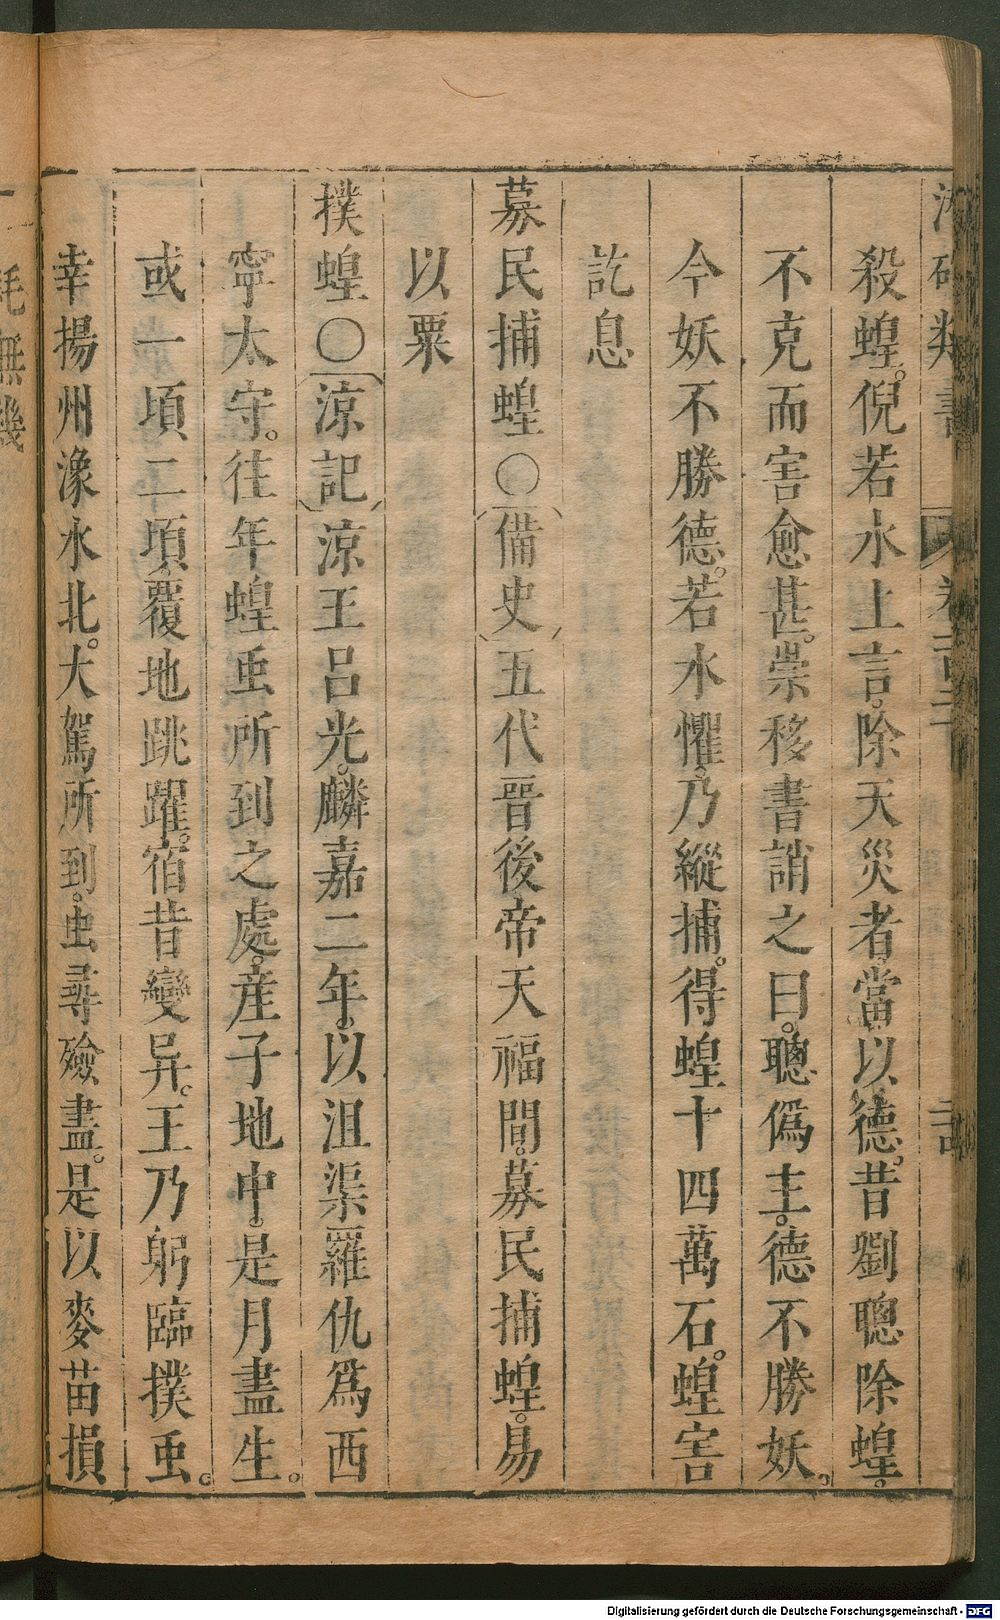 殺蝗。倪若水上言。除天災者。當以德。昔劉聰除蝗。
不克而害愈甚。崇移書誚之曰。聰僞主。德不勝妖。
今妖不勝德。若水懼。乃縱捕。得蝗十四萬石。蝗害
訖息
募民捕蝗〇備史五代晉後帝天福間。募民捕蝗。易
以粟
撲蝗〇涼記涼王呂光。麟嘉二年。以沮渠羅仇爲西
寧太守。往年蝗䖝所到之處。産子地中。是月盡生。
或一頃二頃。覆地跳躍。宿昔變异。王乃躬臨撲䖝。
幸揚州湪水北。大駕所到。虫尋殮盡。是以麥苗損
耗無幾
Digitalisierung gefördert durch die Deutsche Forschungsgemeinschaft - DFG